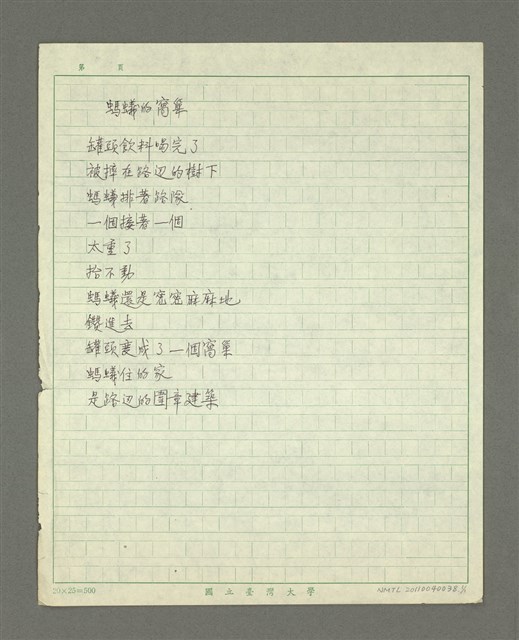 第　頁
螞蟻的窩巢
罐頭飲料喝完了
被摔在路边的樹下
螞蟻排著路隊
一個接著一個
太重了
抬不動
螞蟻還是密密麻麻地
鑽進去
罐頭变成了一個窩巢
螞蟻住的家
是路边的圍章建築
20×25=500
國立臺灣大學
NMTL 20110040038